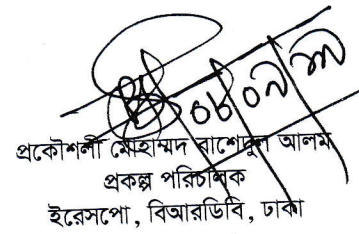 প্রকৌশলী মোহাম্মদ রাশেদুল আলম
প্রকল্প পরিচালক
ইরেসপো, বিআরডিবি, ঢাকা